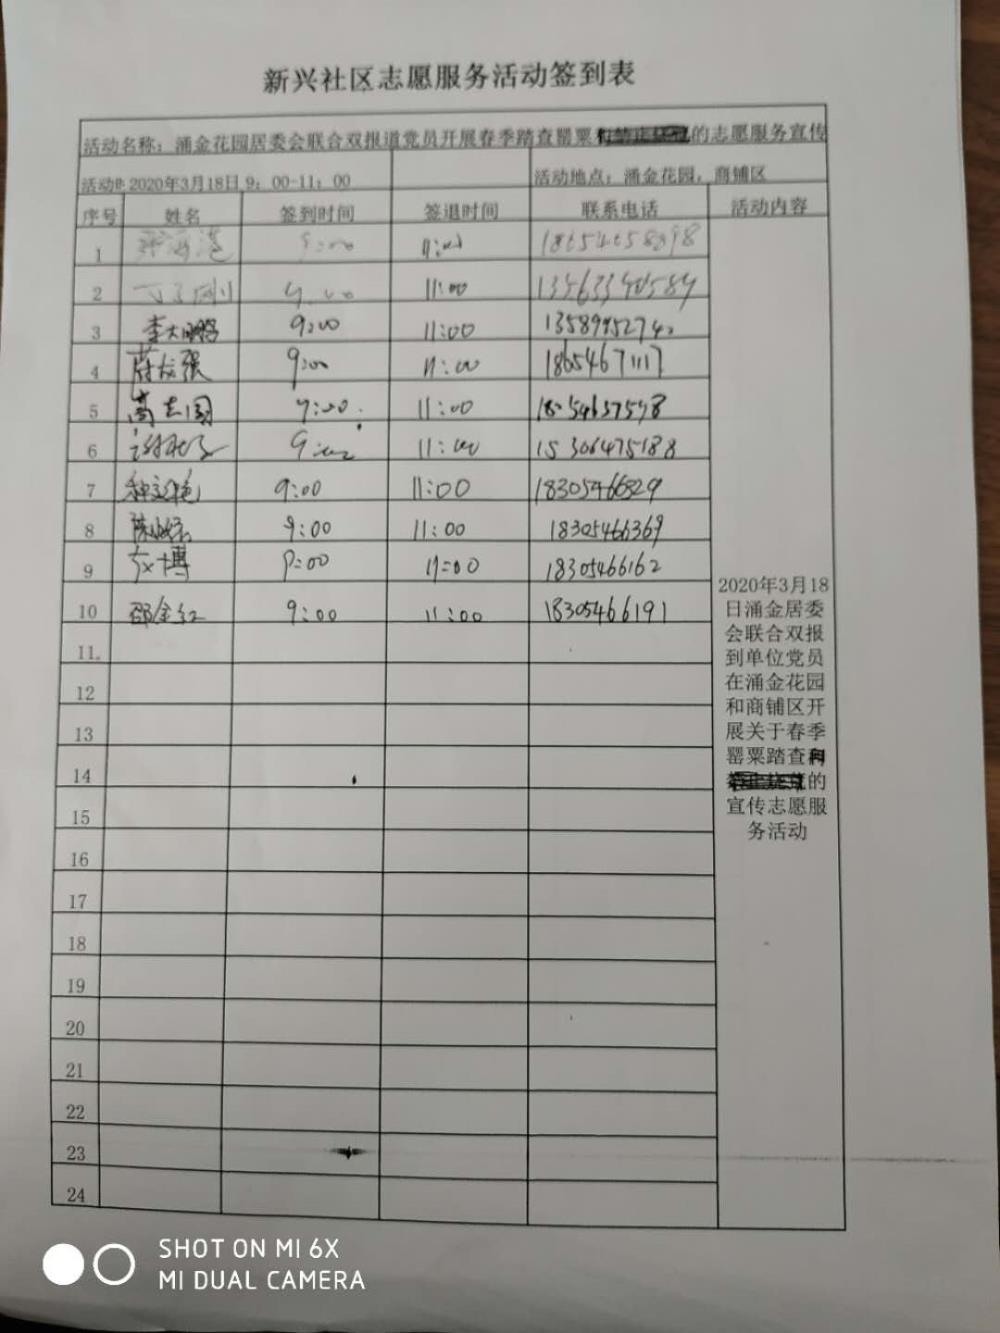 新兴社区志愿服务活动签到表
活动名称：涌金花园居委会联合双报道党员开展春季踏查罂粟 的志愿服务宣传
活动时 2020年3月18日 9：00-11：00 活动地点：涌金花园，商铺区
序号 姓名 签到时间 签退时间 联系电话 活动内容
1 9:00 11:00
2 9:00 11:00
3 李大鹏 9:00 11:00
4 9:00 11:00 18654671117
5 高志国 9:00 11:00
6 9:00 11:00 15306475188
7 9:00 11:00 18305466829
8 9:00 11:00 18305466369
9 9:00 11:00 18305466162
10 邵金红 9:00 11:00 18305466191
11.
12
13
14
15
16
17
18
19
20
21
22
23
24
2020年3月18
日涌金居委
会联合双报
到单位党员
在涌金花园
和商铺区开
展关于春季
罂粟踏查
的
宣传志愿服
务活动
SHOT ON MI 6X
MI DUAL CAMERA